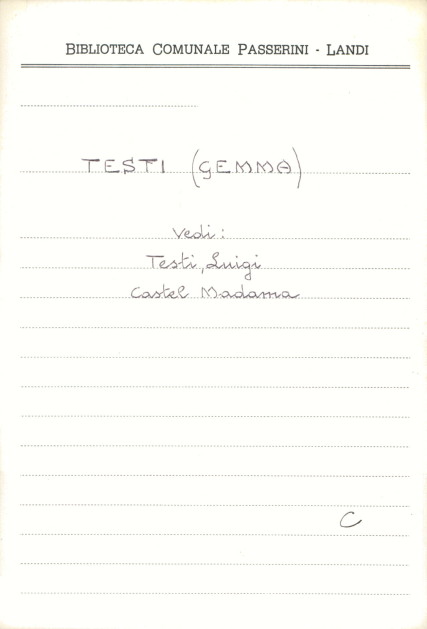 BIBLIOTECA COMUNALE PASSERINI - LANDI
TESTI (GEMMA)
Vedi:
Testi, Luigi
Castel Madama
C